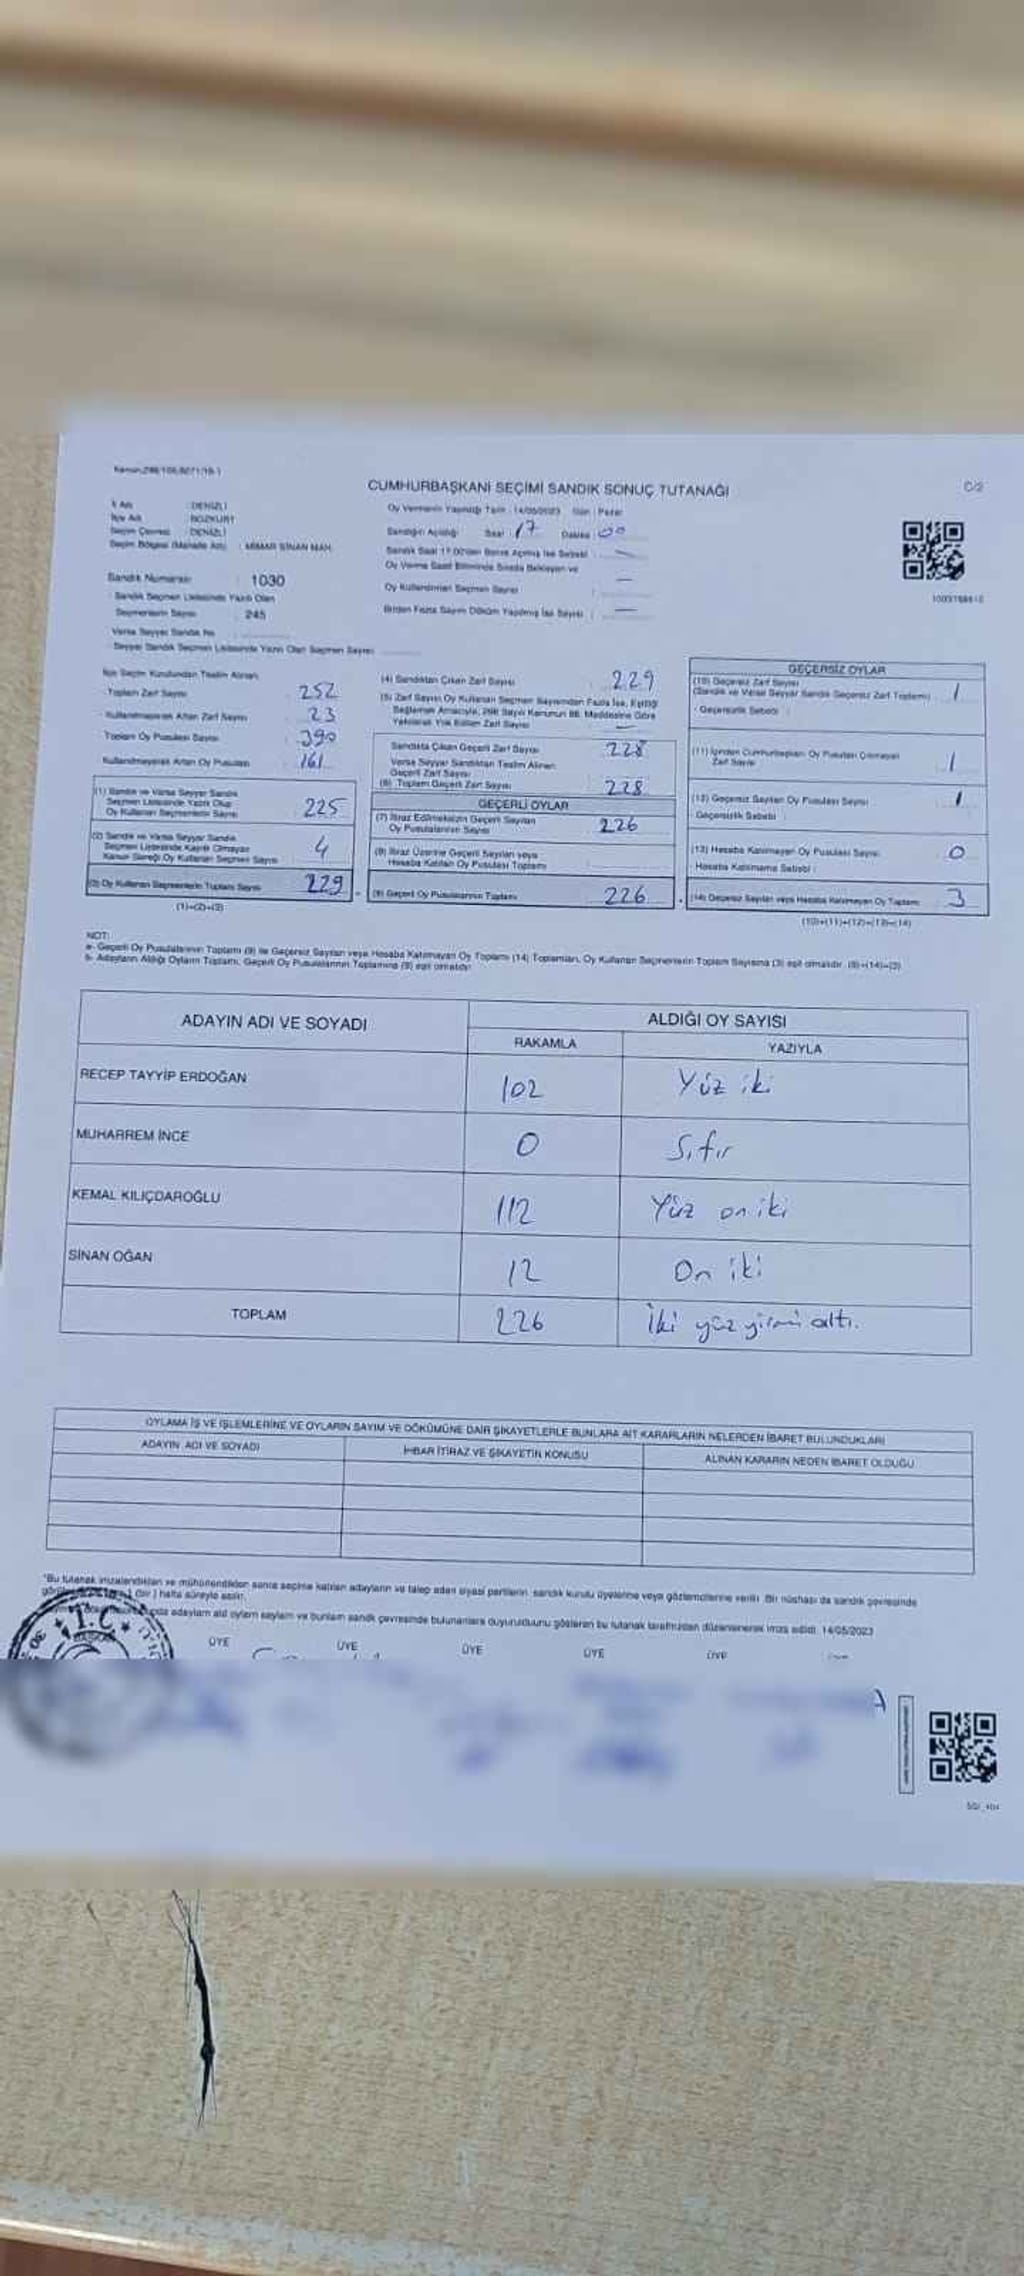 CUMHURBAŞKANI SEÇİMİ SANDIK SONUÇ TUTANAĞI
C/2
İl Adı : DENİZLİ
İlçe Adı : BOZKURT
Seçim Çevresi : DENİZLİ
Seçim Bölgesi (Mahalle Adı) : MİMAR SİNAN MAH.
Sandık Numarası : 1030
Sandık Seçmen Listesinde Yazılı Olan
Seçmenlerin Sayısı : 245
Varsa Seyyar Sandık No :
Seyyar Sandık Seçmen Listesinde Yazılı Olan Seçmen Sayısı :
Oy Vermenin Yapıldığı Tarih : 14/05/2023 Gün : Pazar
Sandığın Açıldığı Saat 17 Dakika 00
Sandık Saat 17.00'den Sonra Açılmış İse Sebebi : —
Oy Verme Saati Bitiminde Sırada Bekleyen ve
Oy Kullandırılan Seçmen Sayısı : —
Birden Fazla Sayım Döküm Yapılmış İse Sayısı : —
İlçe Seçim Kurulundan Teslim Alınan
Toplam Zarf Sayısı : 252
Kullanılmayarak Artan Zarf Sayısı : 23
Toplam Oy Pusulası Sayısı : 390
Kullanılmayarak Artan Oy Pusulası : 161
(1) Sandık ve Varsa Seyyar Sandık
Seçmen Listesinde Yazılı Olup
Oy Kullanan Seçmenlerin Sayısı 225
(2) Sandık ve Varsa Seyyar Sandık
Seçmen Listesinde Kayıtlı Olmayan
Kanun Gereği Oy Kullanan Seçmen Sayısı 4
(3) Oy Kullanan Seçmenlerin Toplam Sayısı 229
(1)+(2)=(3)
(4) Sandıktan Çıkan Zarf Sayısı : 229
(5) Zarf Sayısı Oy Kullanan Seçmen Sayısından Fazla İse, Eşitliği
Sağlamak Amacıyla, 298 Sayılı Kanunun 98. Maddesine Göre
Yakılarak Yok Edilen Zarf Sayısı : —
Sandıkta Çıkan Geçerli Zarf Sayısı : 228
Varsa Seyyar Sandıktan Teslim Alınan
Geçerli Zarf Sayısı
(6) Toplam Geçerli Zarf Sayısı : 228
GEÇERLİ OYLAR
(7) İtiraz Edilmeksizin Geçerli Sayılan
Oy Pusulalarının Sayısı 226
(8) İtiraz Üzerine Geçerli Sayılan veya
Hesaba Katılan Oy Pusulası Toplamı
(9) Geçerli Oy Pusulalarının Toplamı 226
GEÇERSİZ OYLAR
(10) Geçersiz Zarf Sayısı
(Sandık ve Varsa Seyyar Sandık Geçersiz Zarf Toplamı) : 1
Geçersizlik Sebebi :
(11) İçinden Cumhurbaşkanı Oy Pusulası Çıkmayan
Zarf Sayısı 1
(12) Geçersiz Sayılan Oy Pusulası Sayısı : 1
Geçersizlik Sebebi :
(13) Hesaba Katılmayan Oy Pusulası Sayısı : 0
Hesaba Katılmama Sebebi :
(14) Geçersiz Sayılan veya Hesaba Katılmayan Oy Toplamı 3
(10)+(11)+(12)+(13)=(14)
NOT:
a- Geçerli Oy Pusulalarının Toplamı (9) ile Geçersiz Sayılan veya Hesaba Katılmayan Oy Toplamı (14) Toplamları, Oy Kullanan Seçmenlerin Toplam Sayısına (3) eşit olmalıdır. (9)+(14)=(3)
b- Adayların Aldığı Oyların Toplamı, Geçerli Oy Pusulalarının Toplamına (9) eşit olmalıdır.
ADAYIN ADI VE SOYADI
ALDIĞI OY SAYISI
RAKAMLA YAZIYLA
RECEP TAYYİP ERDOĞAN 102 Yüz iki
MUHARREM İNCE 0 Sıfır
KEMAL KILIÇDAROĞLU 112 Yüz on iki
SİNAN OĞAN 12 On iki
TOPLAM 226 İki yüz yirmi altı.
OYLAMA İŞ VE İŞLEMLERİNE VE OYLARIN SAYIM VE DÖKÜMÜNE DAİR ŞİKAYETLERLE BUNLARA AİT KARARLARIN NELERDEN İBARET BULUNDUKLARI
ADAYIN ADI VE SOYADI İHBAR İTİRAZ VE ŞİKAYETİN KONUSU ALINAN KARARIN NEDEN İBARET OLDUĞU
*Bu tutanak imzalandıktan ve mühürlendikten sonra seçime katılan adayların ve talep eden siyasi partilerin sandık kurulu üyelerine veya gözlemcilerine verilir. Bir nüshası da sandık çevresinde
(bir) hafta süreyle asılır.
adayların aldığı oyların sayılanı ve bunların sandık çevresinde bulunanlara duyurulduğunu gösteren bu tutanak tarafımızdan düzenlenerek imza edildi. 14/05/2023
T.C.
ÜYE ÜYE ÜYE ÜYE ÜYE